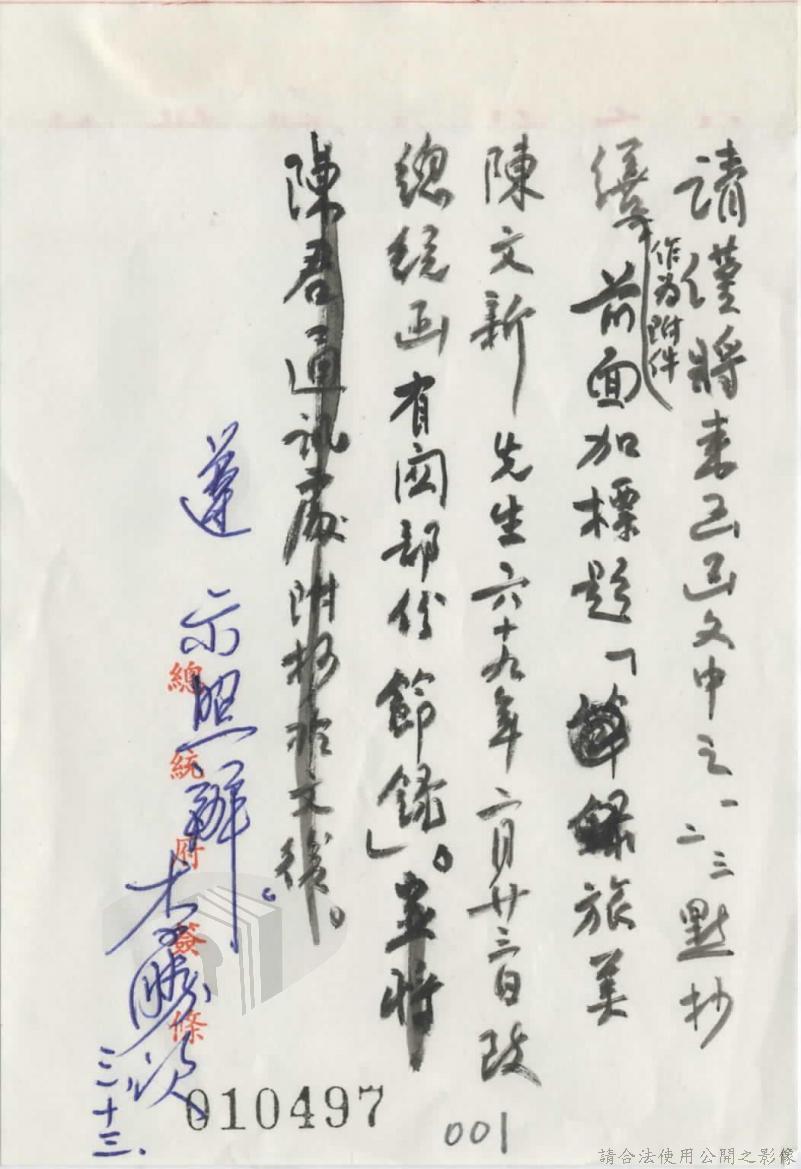 請僅將來函函文中之一二三點抄
繕作為附件前面加標題「節錄旅美
陳文新先生六十九年二月廿三日致
總統函有関部份節錄」。並將
陳君通訊處附抄於文後。
遵示照辦。
三、十三、
總統府簽條
010497
001
請合法使用公開之影像